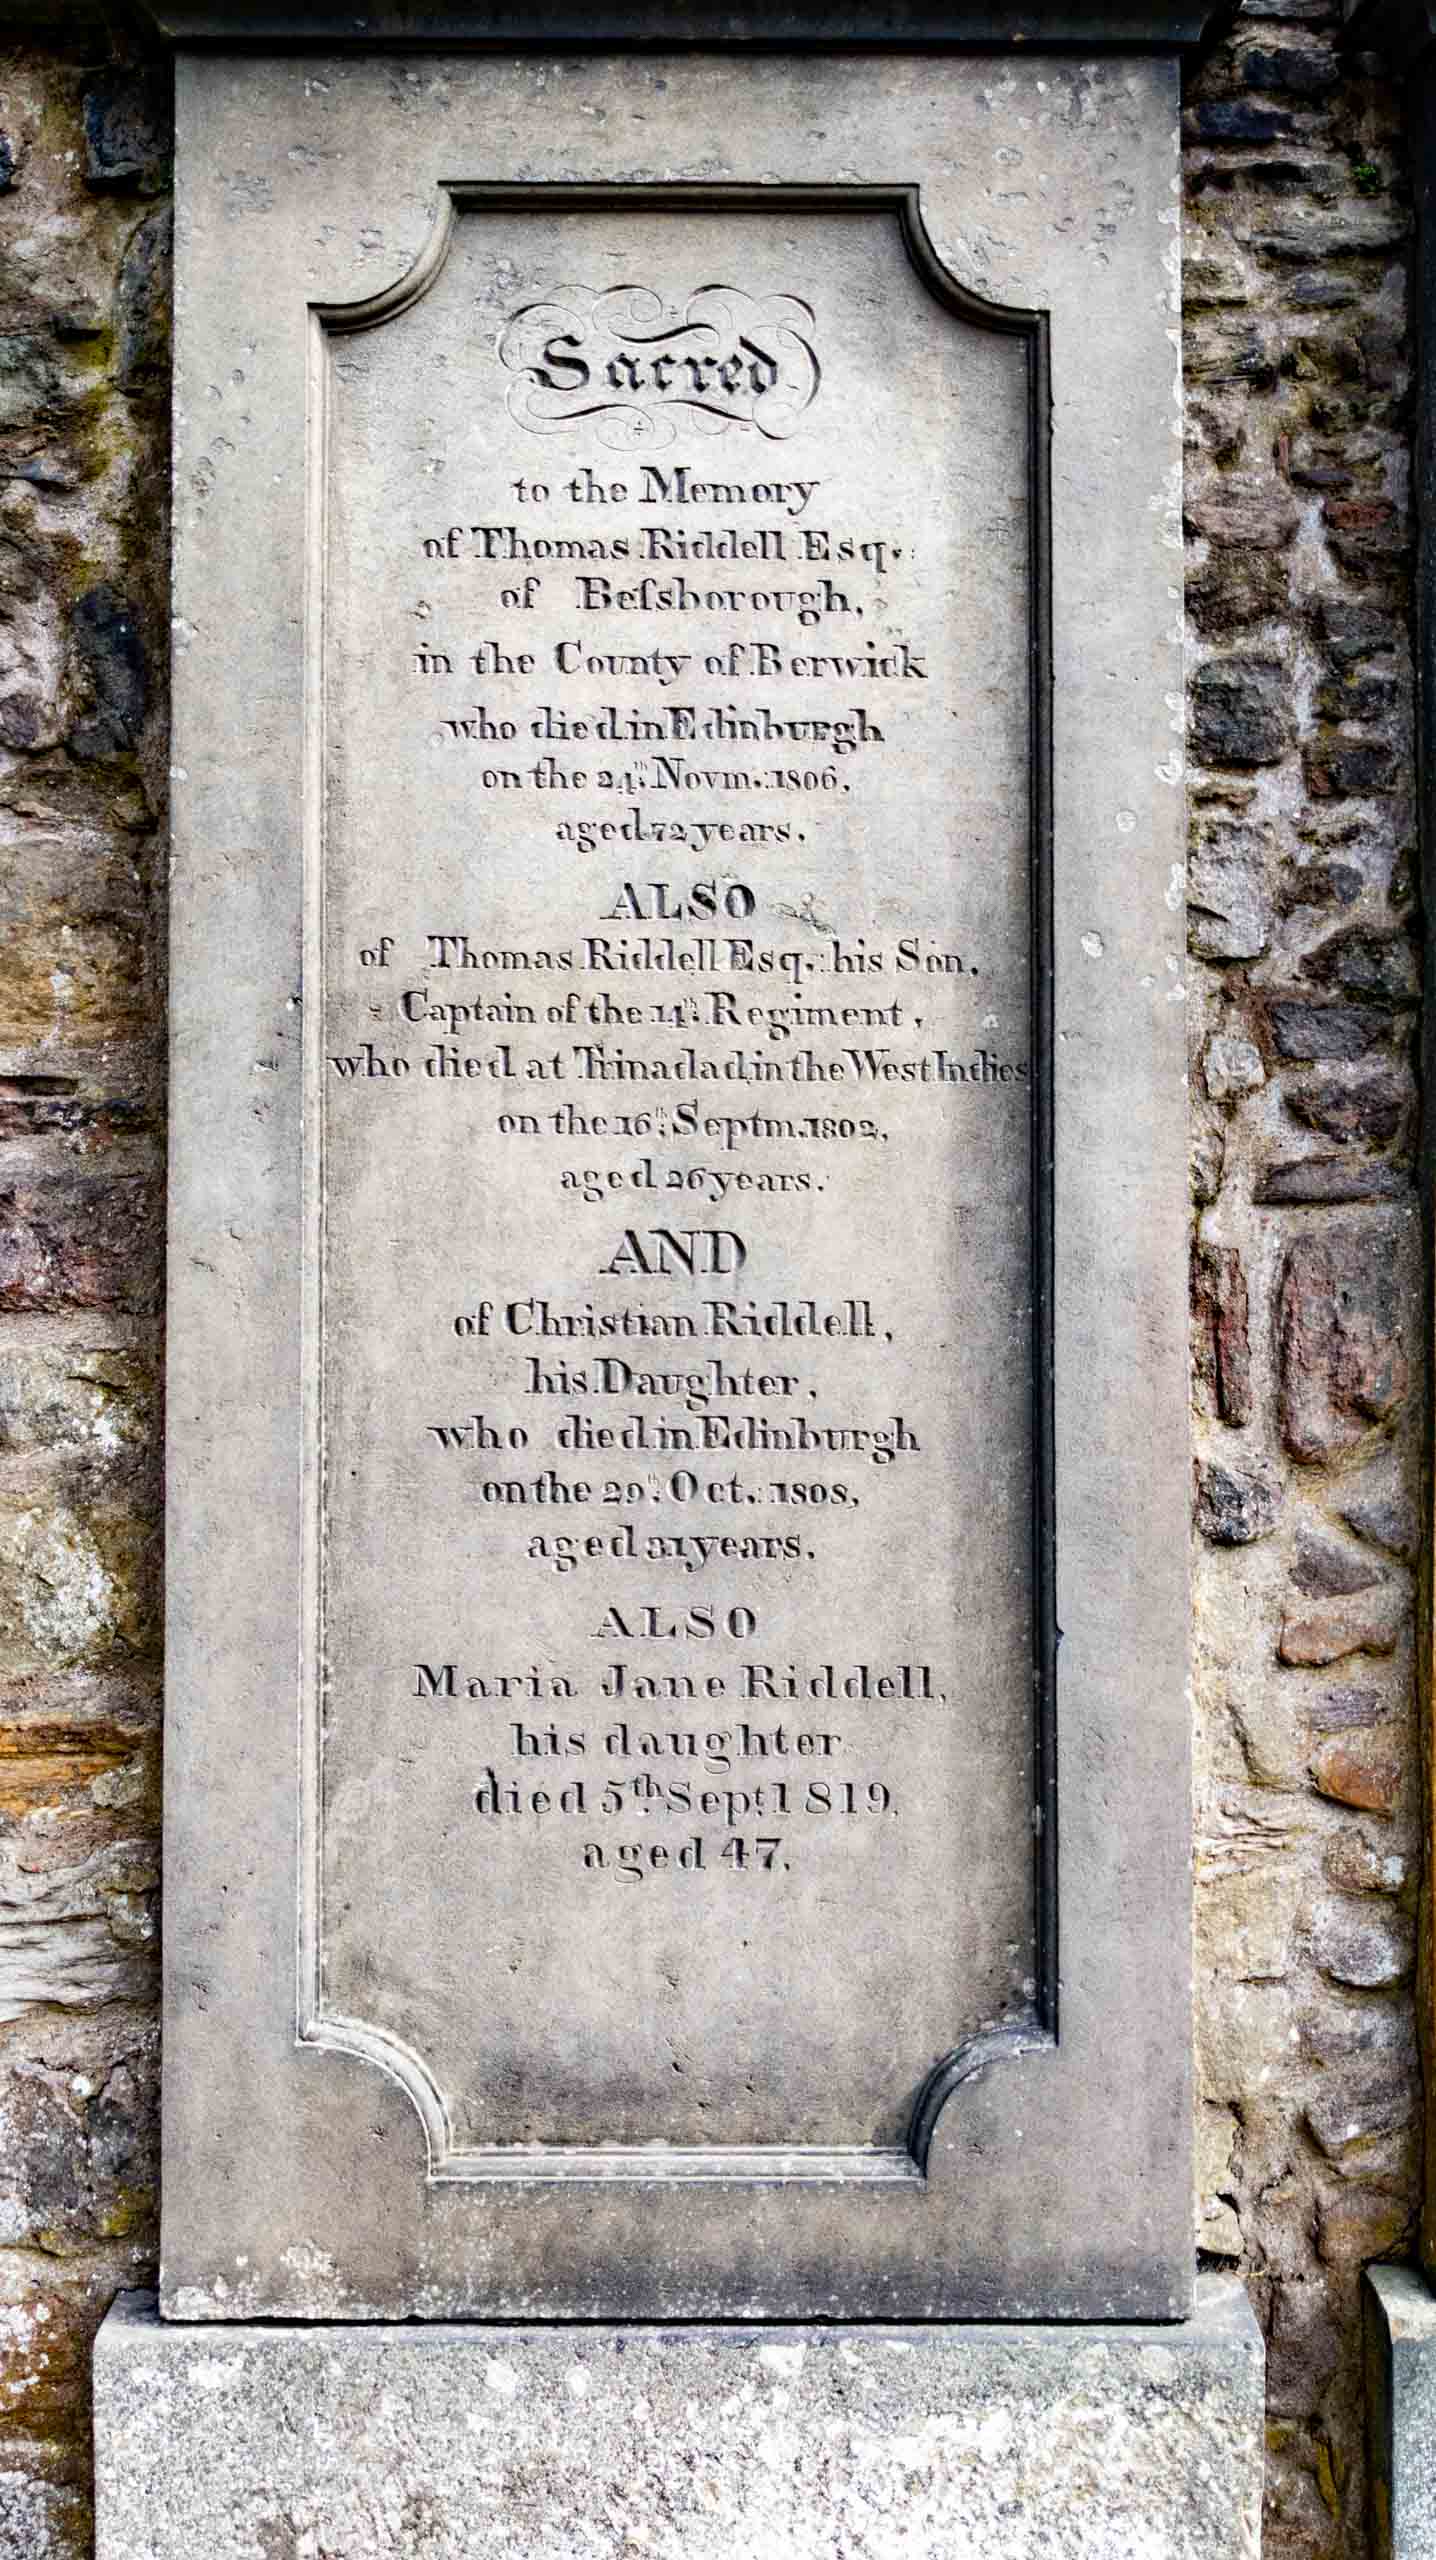 Sacred
to the Memory
of Thomas Riddell Esq.:
of Beſsborough,
in the County of Berwick
who died in Edinburgh
on the 24th. Novm.: 1806,
aged 72 years.
ALSO
of Thomas Riddell Esq.: his Son,
Captain of the 14th. Regiment,
who died at Trinadad in the West Indies
on the 16th. Septm. 1802,
aged 26 years.
AND
of Christian Riddell,
his Daughter,
who died in Edinburgh
on the 29th. Oct.: 1808,
aged 31 years.
ALSO
Maria Jane Riddell,
his daughter
died 5th. Sept. 1819,
aged 47.